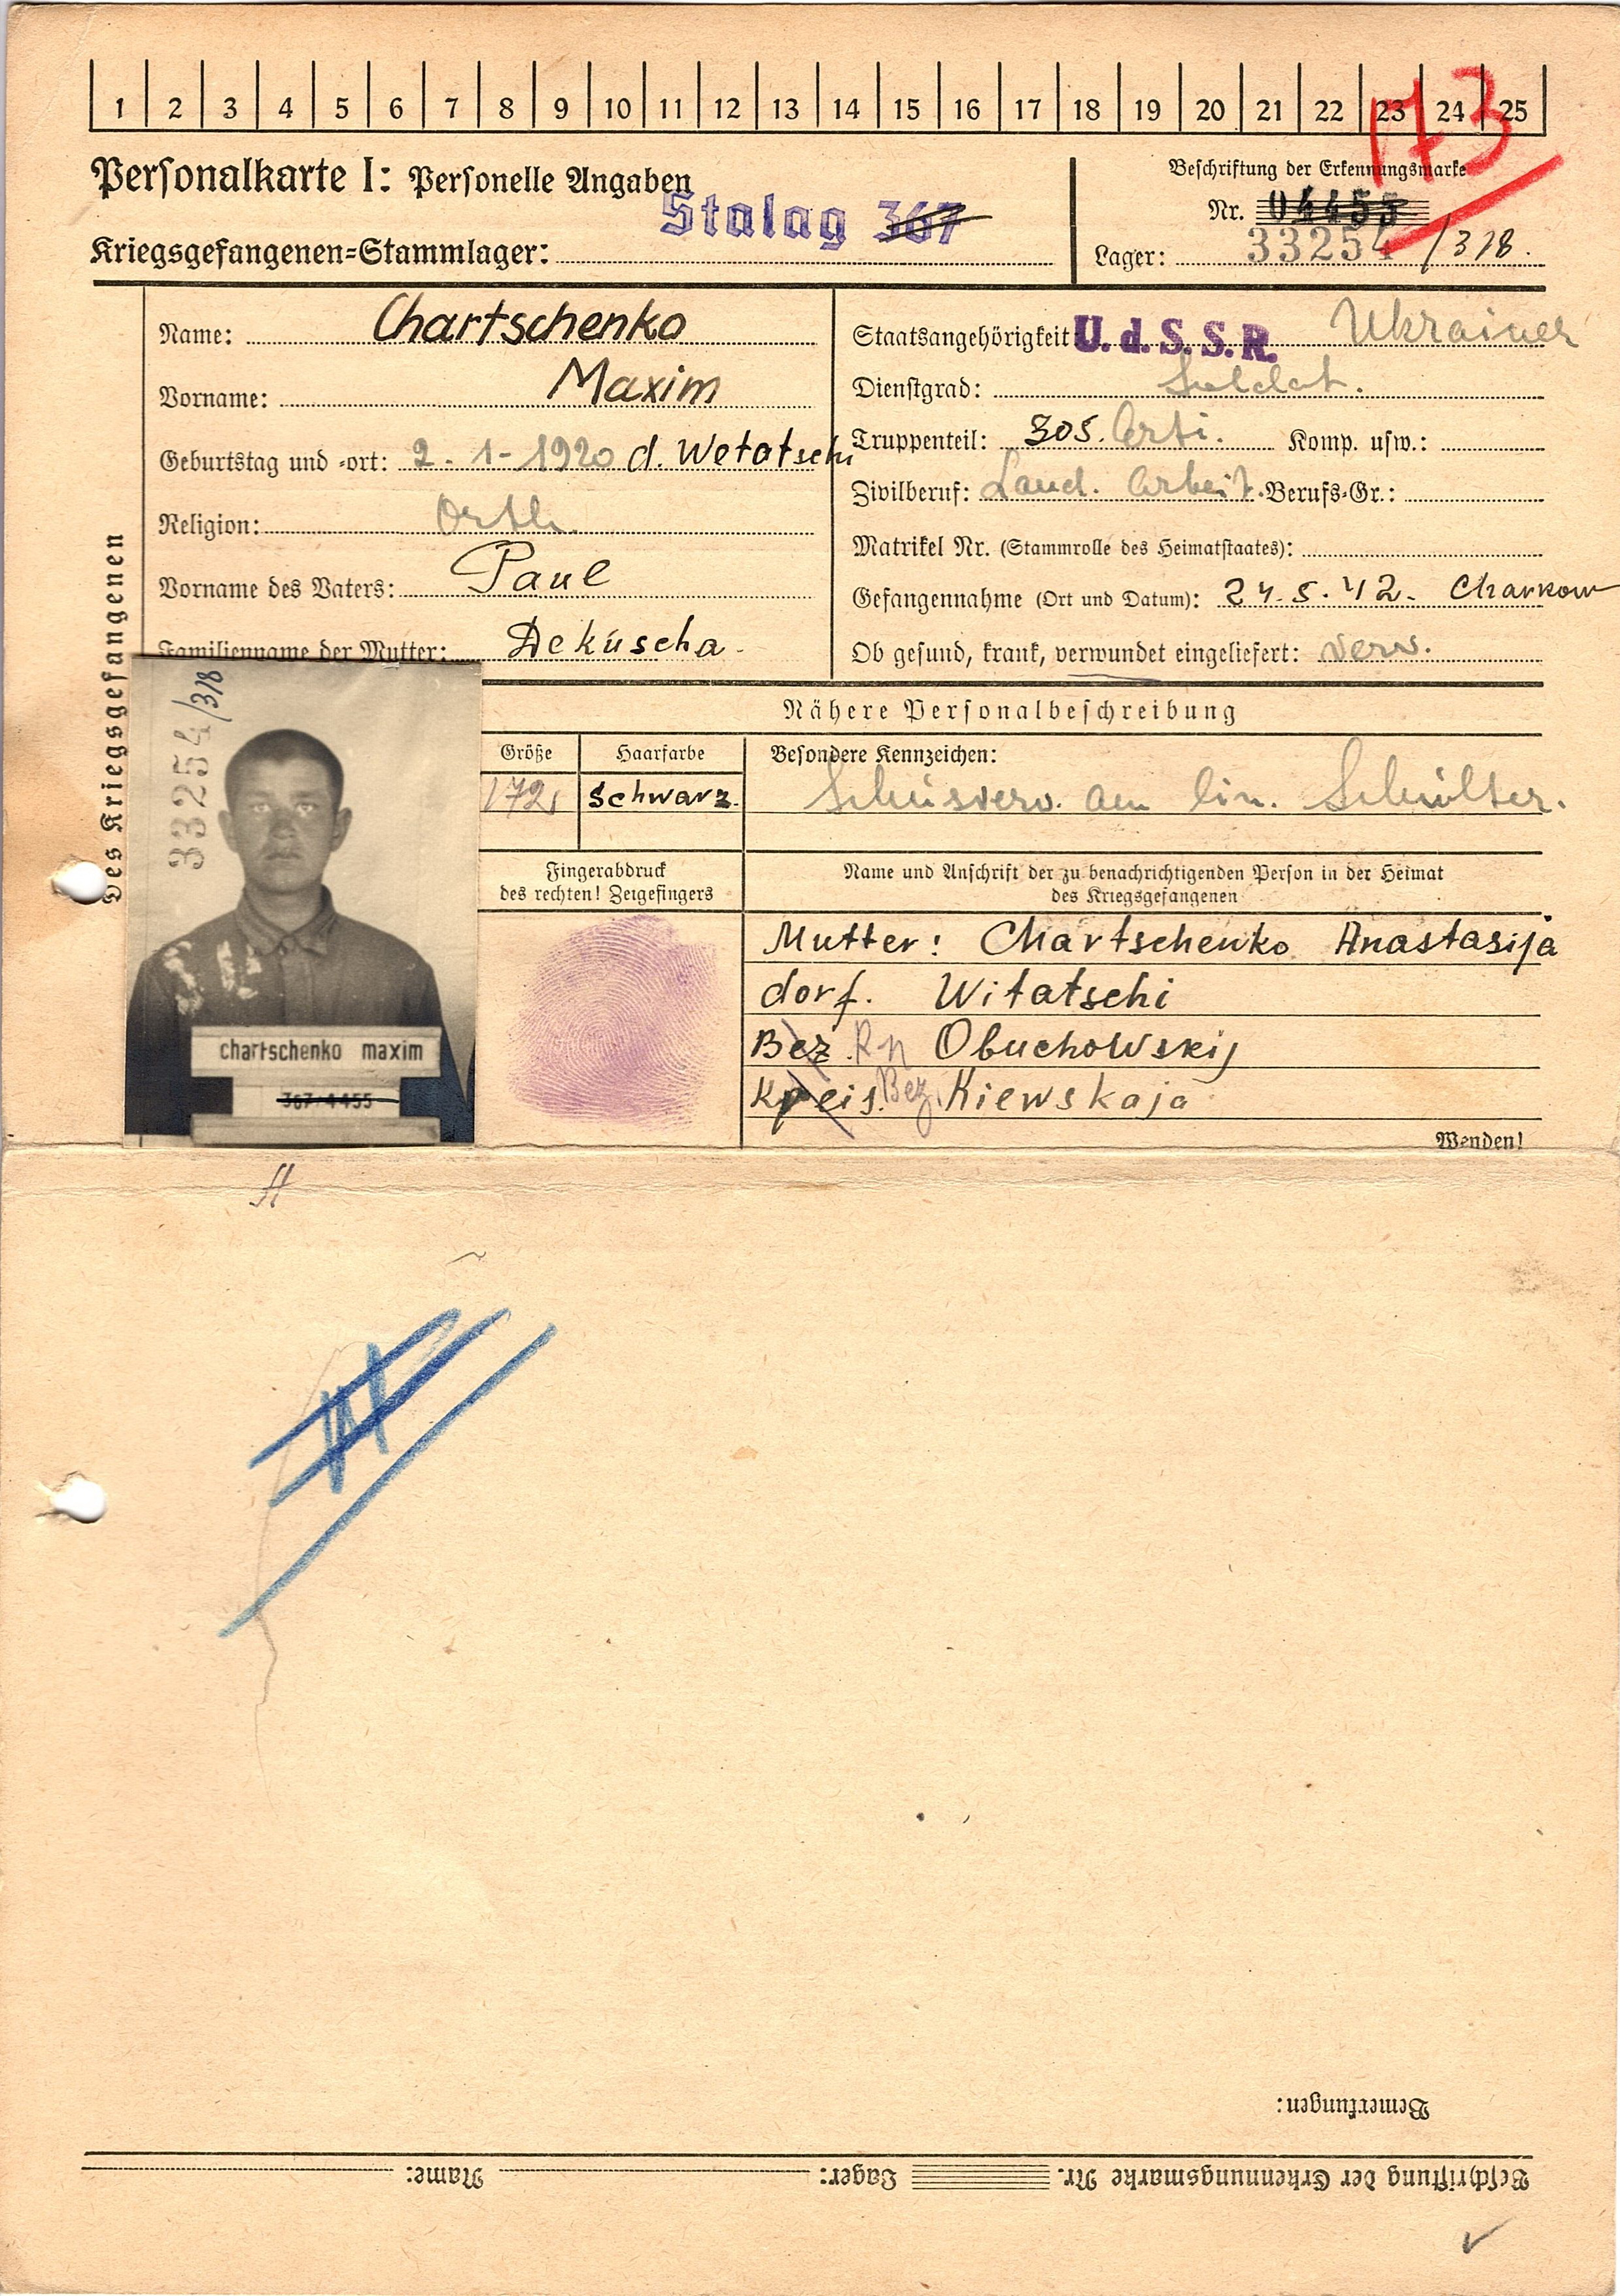 1 2 3 4 5 6 7 8 9 10 11 12 13 14 15 16 17 18 19 20 21 22 23 24 25
173
Personalkarte I: Personelle Angaben
Beschriftung der Erkennungsmarke
Stalag 367
Nr. 04455
Kriegsgefangenen=Stammlager:
Lager: 33254/318.
Des Kriegsgefangenen
Name: Chartschenko
Vorname: Maxim
Geburtstag und =ort: 2.-1-1920 d. Wetatschi
Religion: Orth.
Vorname des Vaters: Paul
Familienname der Mutter: Dekuscha.
Staatsangehörigkeit: U.d.S.S.R. Ukrainer
Dienstgrad: Soldat.
Truppenteil: 305. Arti. Komp. usw.:
Zivilberuf: Land. Arbeit. Berufs=Gr.:
Matrikel Nr. (Stammrolle des Heimatstaates):
Gefangennahme (Ort und Datum): 24.5.42. Charkow
Ob gesund, krank, verwundet eingeliefert: verw.
33254/318
chartschenko maxim
367 4455
Nähere Personalbeschreibung
Größe Haarfarbe Besondere Kennzeichen:
172 schwarz. am lin. Schulter.
Fingerabdruck
des rechten! Zeigefingers
Name und Anschrift der zu benachrichtigenden Person in der Heimat
des Kriegsgefangenen
Mutter: Chartschenko Anastasija
dorf. Witatschi
Bez. Rn Obuchowskij
Kreis. Bez. Kiewskaja
Wenden!
Bemerkungen:
Beschriftung der Erkennungsmarke Nr. Lager: Name: